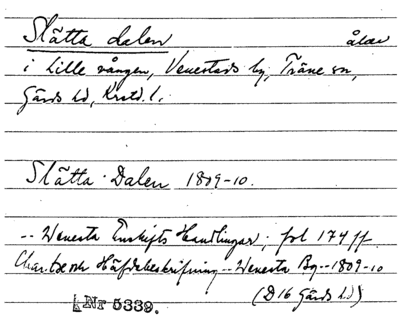 Slätta dalen åker
i Lille vången, Venestads by, Träne sn,
Gärds hd, Krstd. l.
Slätta Dalen 1809-10.
-- Wenesta Enskifts Handlingar; fol 174 ff
Charta och Häfdebeskrifning -- Wenesta By -- 1809-10
(D16 Gärds hd)
Nr 5339.